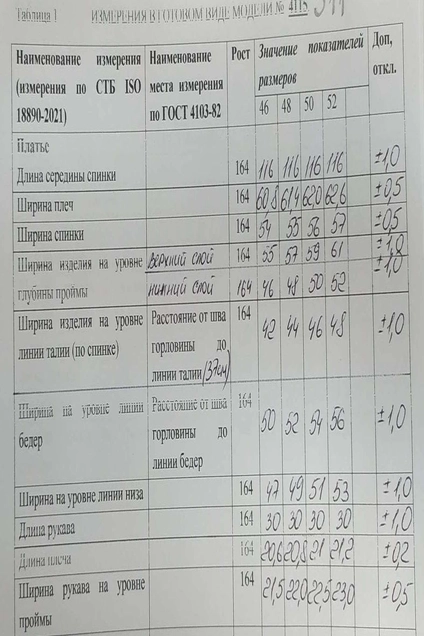 Таблица 1 ИЗМЕРЕНИЯ В ГОТОВОМ ВИДЕ МОДЕЛИ № 4115
Наименование измерения (измерения по СТБ ISO 18890-2021) Наименование места измерения по ГОСТ 4103-82 Рост Значение показателей размеров Доп, откл.
46 48 50 52
Платье
Длина середины спинки 164 116 116 116 116 ±1,0
Ширина плеч 164 60,8 61,4 62,0 62,6 ±0,5
Ширина спинки 164 54 55 56 57 ±0,5
Ширина изделия на уровне верхний слой 164 55 57 59 61 ±1,0
глубины проймы нижний слой 164 46 48 50 52 ±1,0
Ширина изделия на уровне Расстояние от шва 164
линии талии (по спинке) горловины до 42 44 46 48 ±1,0
линии талии (37см)
Ширина на уровне линии Расстояние от шва 164
бедер горловины до 50 52 54 56 ±1,0
линии бедер
Ширина на уровне линии низа 164 47 49 51 53 ±1,0
Длина рукава 164 30 30 30 30 ±1,0
Длина плеча 164 20,6 20,8 21 21,2 ±0,2
Ширина рукава на уровне 164 21,5 22,0 22,5 23,0 ±0,5
проймы